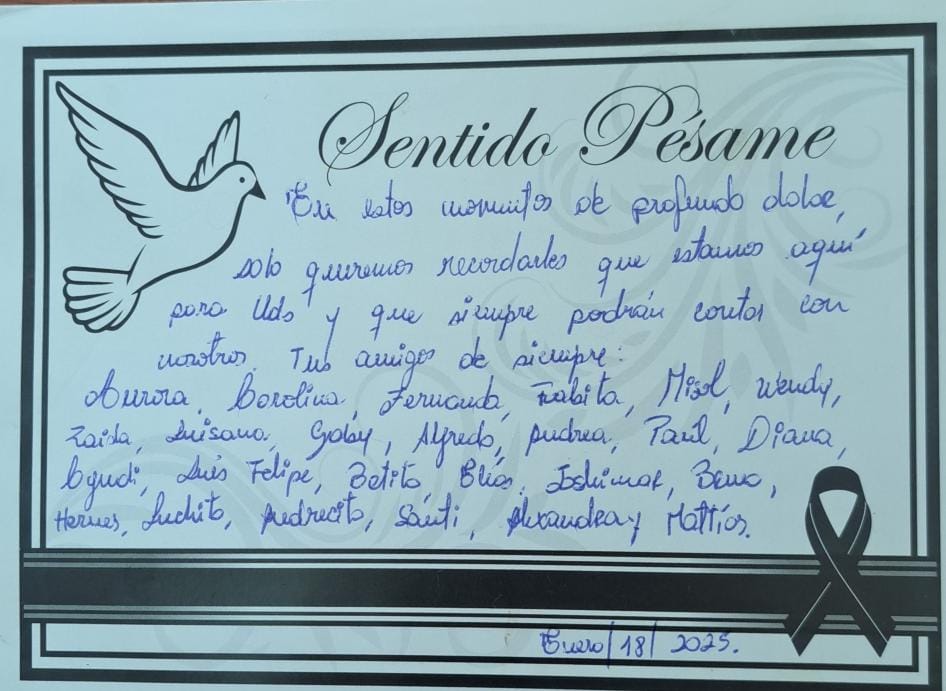 Sentido Pésame
"En estos momentos de profundo dolor,
solo queremos recordarles que estamos aquí
para Uds y que siempre podrán contar con
nosotros. Tus amigos de siempre:
Aurora, Carolina, Fernanda, Isabita, Misol, Wendy,
Zaida, Luisana, Gaby, Alfredo, Andrea, Paúl, Diana,
Luis Felipe, Betito, Elías, Joshimar, Beno,
Hermes, Luchito, Andrecito, Santi, Alexandra y Mattías.
Enero/18/2025.